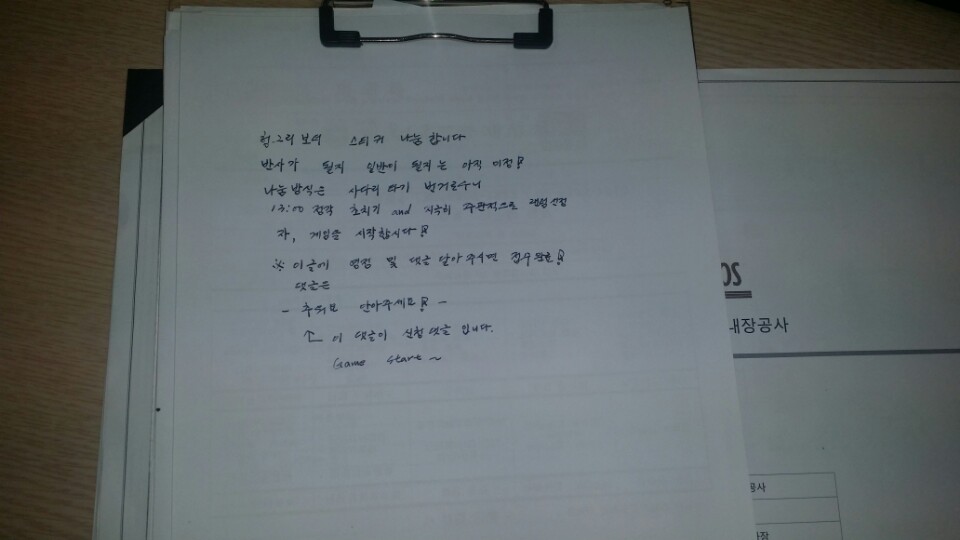 헝그리보더 스티커 나눔합니다
반사가 될지 일반이 될지는 아직 미정!
나눔방식은 사다리 타기 번거로우니
13:00 정각 초치기 and 지극히 주관적으로 랜덤선정
자, 게임을 시작합시다!
※ 이글에 및 댓글 달아주시면 접수완료!
댓글은
- 달아주세요! -
↑ 이 댓글이 신청댓글 입니다.
Game start~
OS
내장공사
공사